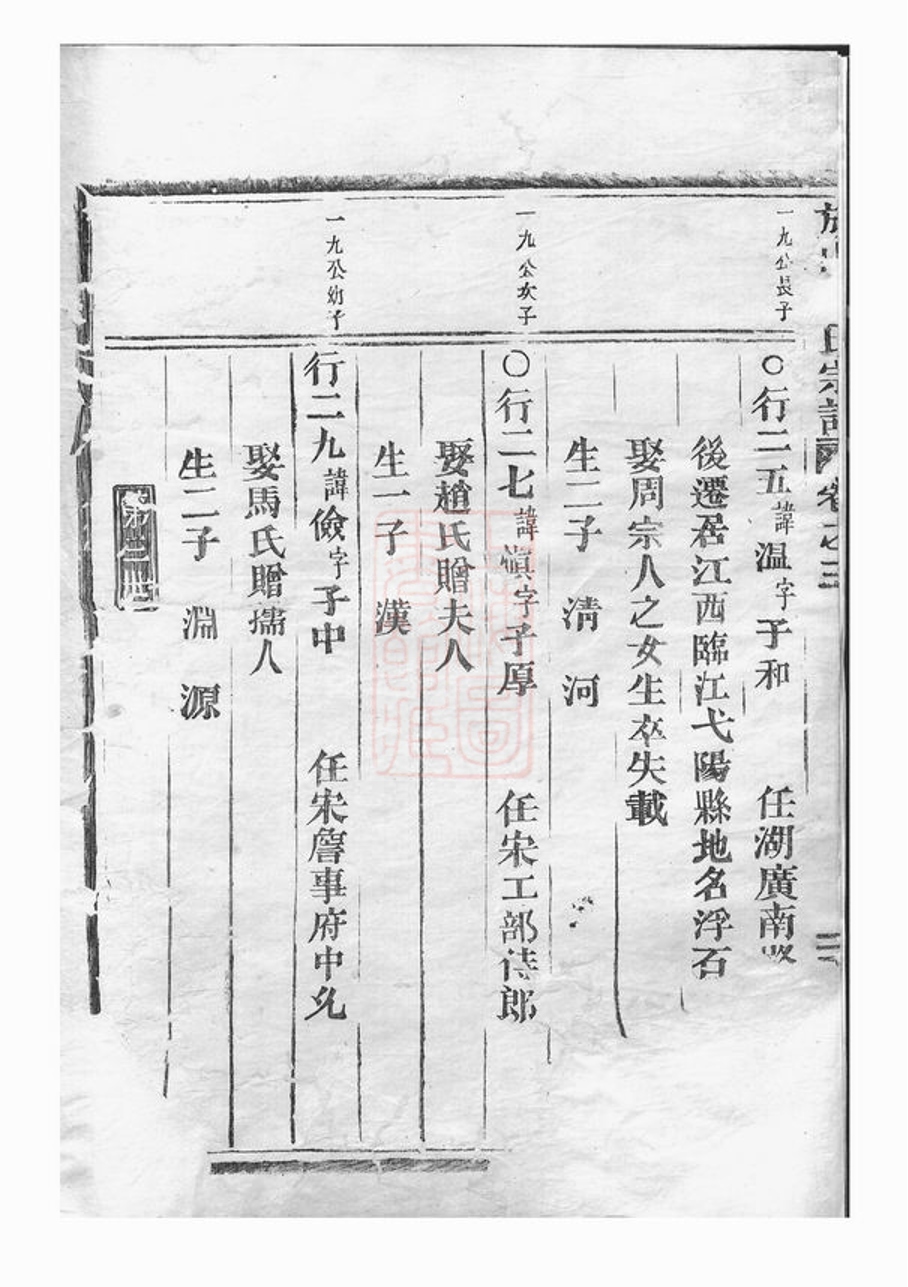 氏宗譜 卷之三
一九公長子
○行二五諱温字子和 任湖廣南
後遷居江西臨江弋陽縣地名浮石
娶周宗人之女生卒失載
生二子 清 河
一九公次子
○行二七諱愼字子厚 任宋工部侍郎
娶趙氏贈夫人
生一子 漢
一九公幼子
行二九諱儉字子中 任宋詹事府中允
娶馬氏贈孺人
生二子 淵 源